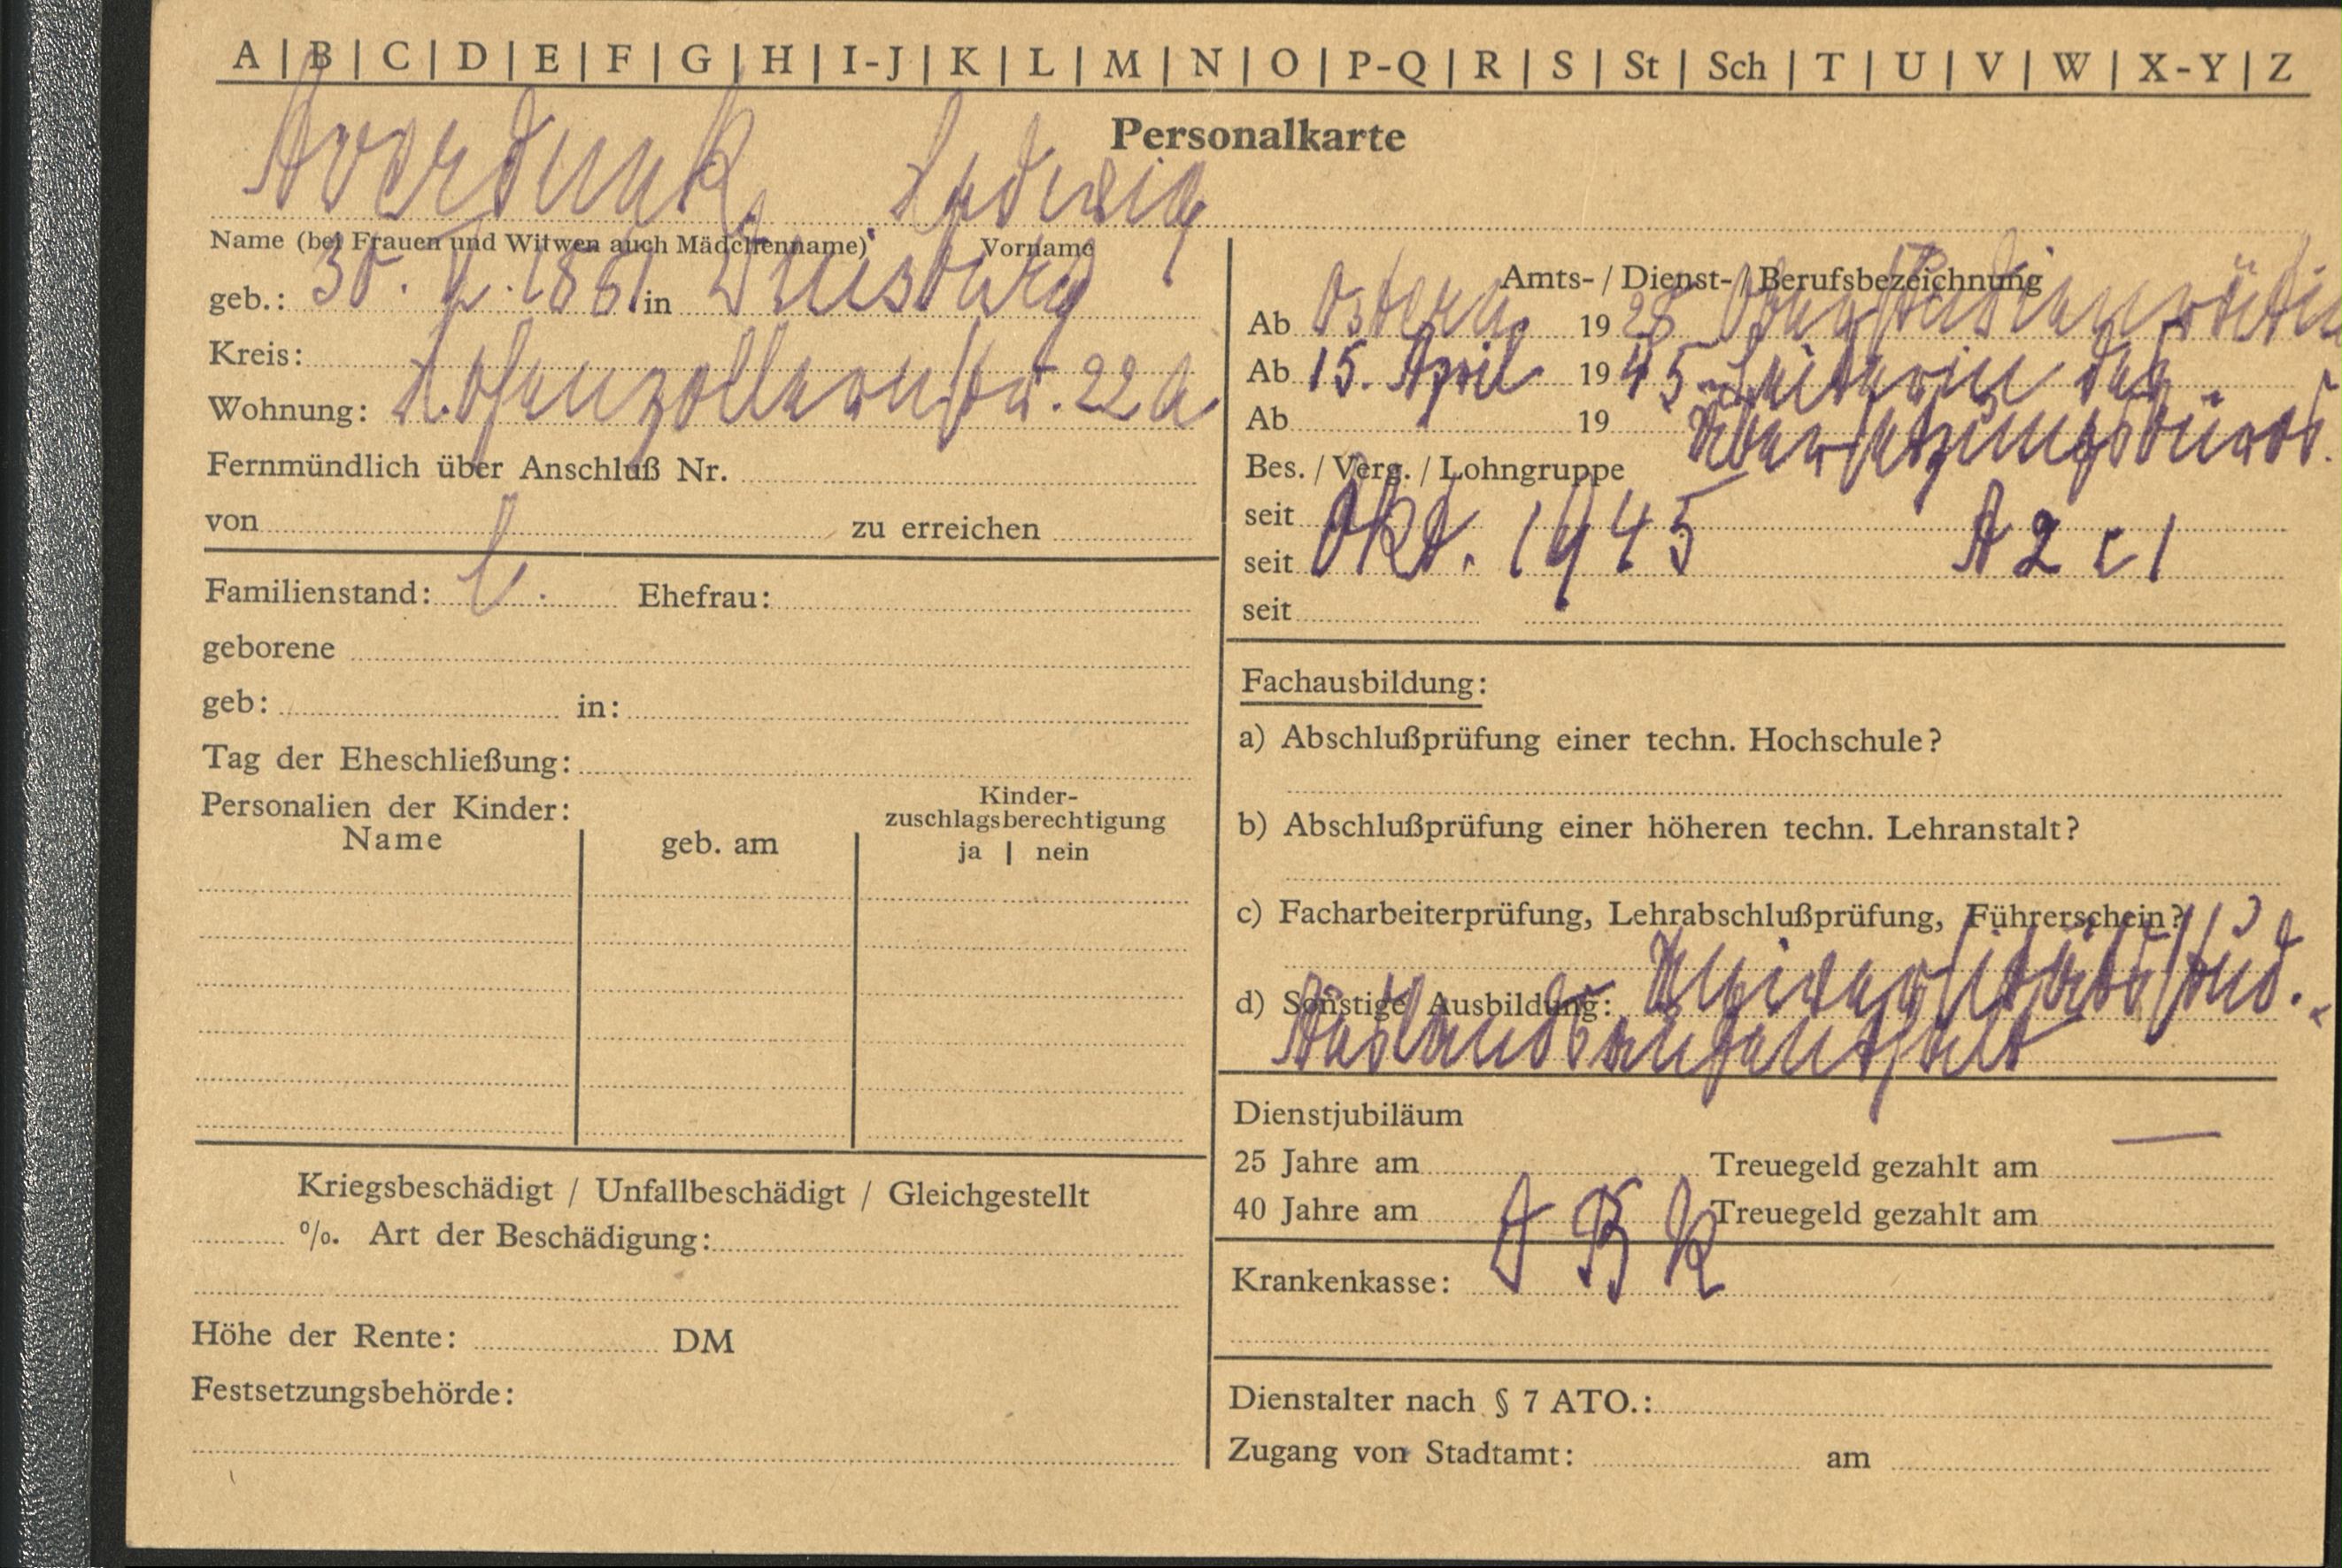 A | B | C | D | E | F | G | H | I-J | K | L | M | N | O | P-Q | R | S | St | Sch | T | U | V | W | X-Y | Z
Personalkarte
Averdunk, Ludwig
Name (bei Frauen und Witwen auch Mädchenname) Vorname
geb.: in Duisburg
Kreis:
Wohnung: Hohenzollernstr. 22a
Fernmündlich über Anschluß Nr.
von zu erreichen
Familienstand: l. Ehefrau:
geborene
geb: in:
Tag der Eheschließung:
Personalien der Kinder:
Name geb. am Kinder-
zuschlagsberechtigung
ja | nein
Kriegsbeschädigt / Unfallbeschädigt / Gleichgestellt
%. Art der Beschädigung:
Höhe der Rente: DM
Festsetzungsbehörde:
Amts- / Dienst- / Berufsbezeichnung
Ab Ostern 1928 Oberstudienrätin
Ab 15. April 1945 Leiterin des
Ab 19 Übersetzungsbüros.
Bes. / Verg. / Lohngruppe
seit
seit Okt. 1945 A 2 c 1
seit
Fachausbildung:
a) Abschlußprüfung einer techn. Hochschule?
b) Abschlußprüfung einer höheren techn. Lehranstalt?
c) Facharbeiterprüfung, Lehrabschlußprüfung, Führerschein?
d) Sonstige Ausbildung: Universitätsstud.
Auslandsaufenthalt
Dienstjubiläum
25 Jahre am Treuegeld gezahlt am —
40 Jahre am Treuegeld gezahlt am
Krankenkasse:
Dienstalter nach § 7 ATO.:
Zugang von Stadtamt: am